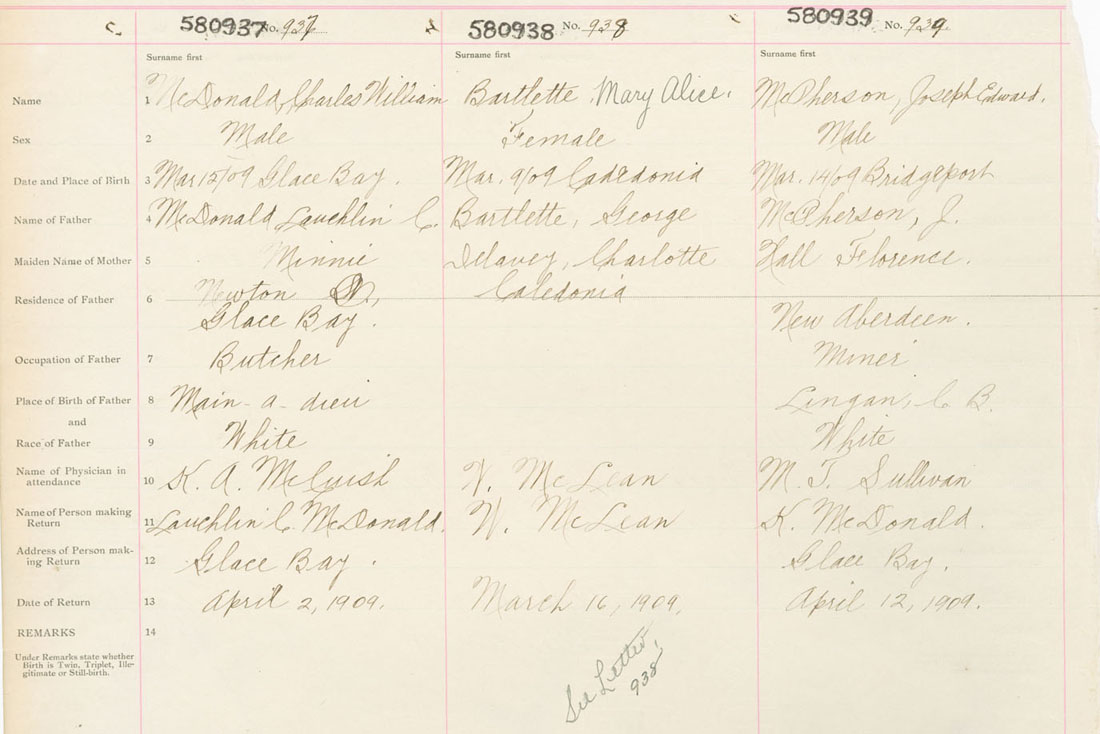 580937 No. 937 580938 No. 938 580939 No. 939
Surname first Surname first Surname first
Name 1 McDonald, Charles William Bartlette, Mary Alice. McPherson, Joseph Edward.
Sex 2 Male Female Male
Date and Place of Birth 3 Mar 12/09 Glace Bay. Mar. 9/09 Caledonia Mar. 14/09 Bridgeport
Name of Father 4 McDonald Lauchlin C. Bartlette, George McPherson, J.
Maiden Name of Mother 5 Minnie Delavey, Charlotte Hall Florence.
Residence of Father 6 Newton Caledonia
Glace Bay. New Aberdeen.
Occupation of Father 7 Butcher Miner
Place of Birth of Father 8 Main-a-dieu Lingan, C B.
and
Race of Father 9 White White
Name of Physician in
attendance 10 K. A. McCuish W. McLean M. T. Sullivan
Name of Person making
Return 11 Lauchlin C. McDonald. W. McLean K. McDonald.
Address of Person mak-
ing Return 12 Glace Bay. Glace Bay.
Date of Return 13 April 2, 1909. March 16, 1909. April 12, 1909.
REMARKS 14
Under Remarks state whether
Birth is Twin, Triplet, Ille-
gitimate or Still-birth.
See Letter
938